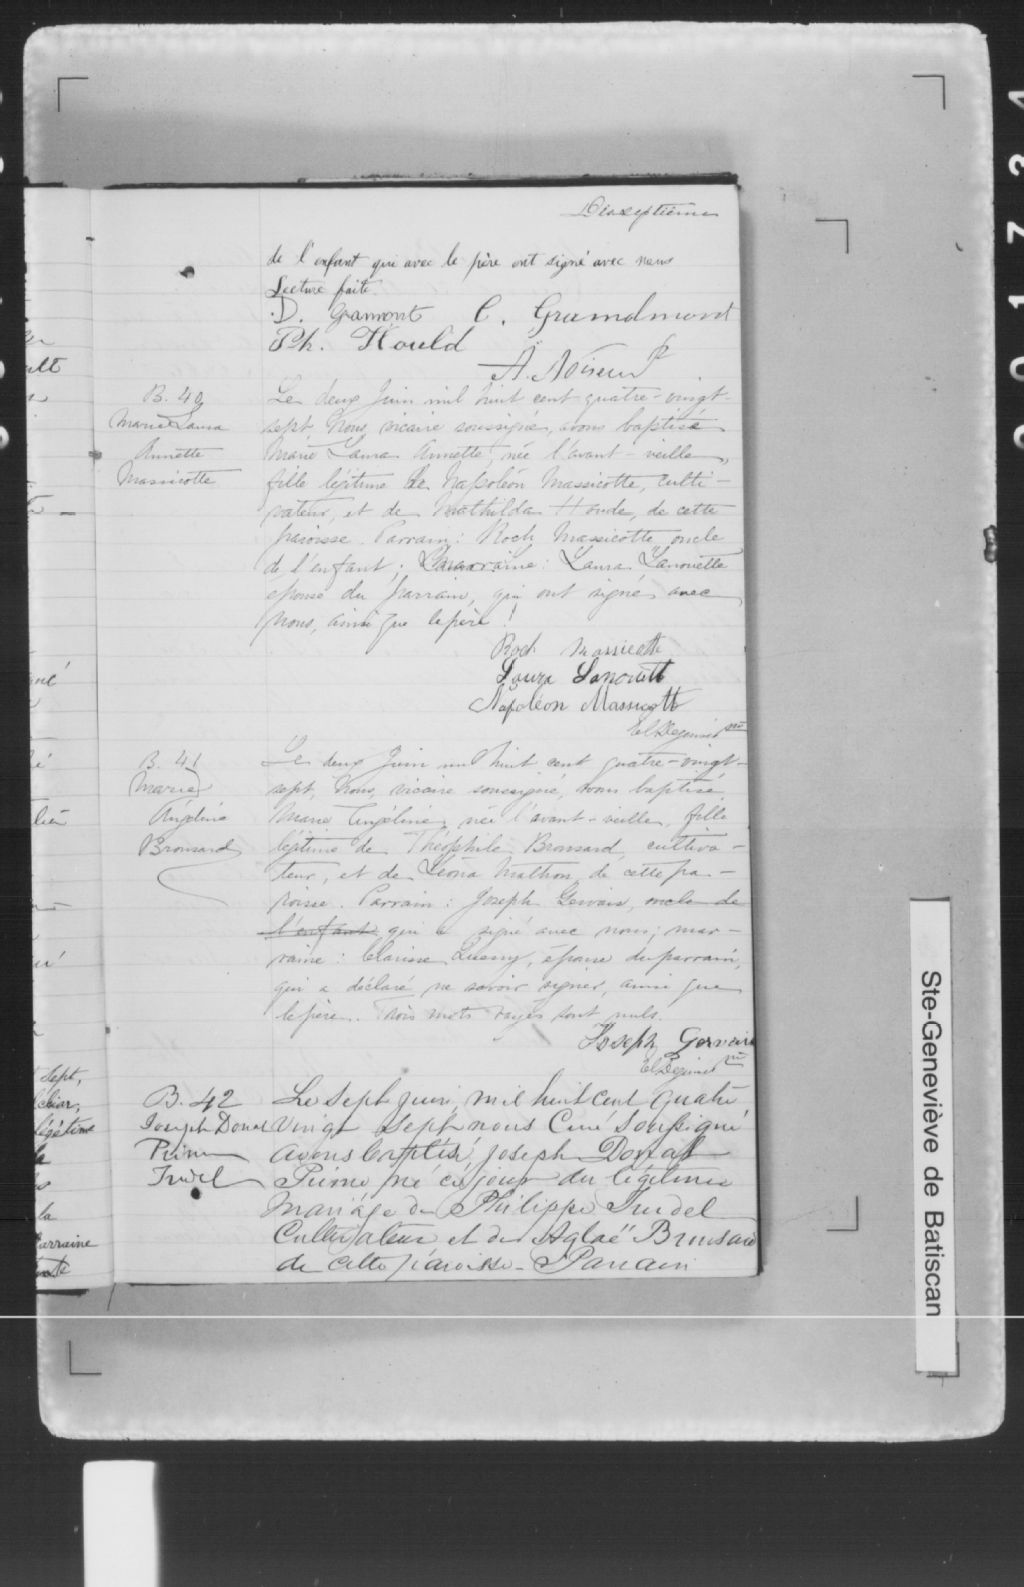 Dixseptième
de l'enfant qui avec le père ont signé avec nous
Lecture faite.
D. Gramont C. Grandmont
Ph. Hould
B. 40
Marie Laura
Annette
Massicotte
Le deux Juin mil huit cent quatre-vingt-
sept, Nous, vicaire soussigné, avons baptisé
Marie Laura Annette, née l'avant-veille,
fille légitime de Napoléon Massicotte, culti-
vateur, et de Mathilda Houde, de cette
paroisse. Parrain: Roch Massicotte, oncle
de l'enfant; marraine: Laura Lanouette
épouse du parrain, qui ont signé avec
Nous, ainsi que le père.
Roch Massicotte
Laura Lanouett
Napoléon Massicotte
B. 41
Marie
Angéline
Bronsard
Le deux Juin mil huit cent quatre-vingt-
sept, Nous, vicaire soussigné, avons baptisé
Marie Angéline, née l'avant-veille, fille
légitime de Théophile Bronsard, cultiva-
teur, et de Léona Mathon, de cette pa-
roisse. Parrain: Joseph Gervais, oncle de
l'enfant qui a signé avec nous; mar-
raine: Clarisse épouse du parrain,
qui a déclaré ne savoir signer, ainsi que
le père. Trois mots rayés sont nuls.
Joseph Gervais
B. 42
Joseph Donat
Prime
Trudel
Le Sept juin, mil huit cent quatre
vingt sept nous Curé soussigné
avons baptisé Joseph Donat
Prime né ce jour du légitime
mariage de Philippe Trudel
Cultivateur et de Aglaë Bronsard
de cette paroisse - Parrain
sept,
légitime
la
la
arraine
Ste-Geneviève de Batiscan